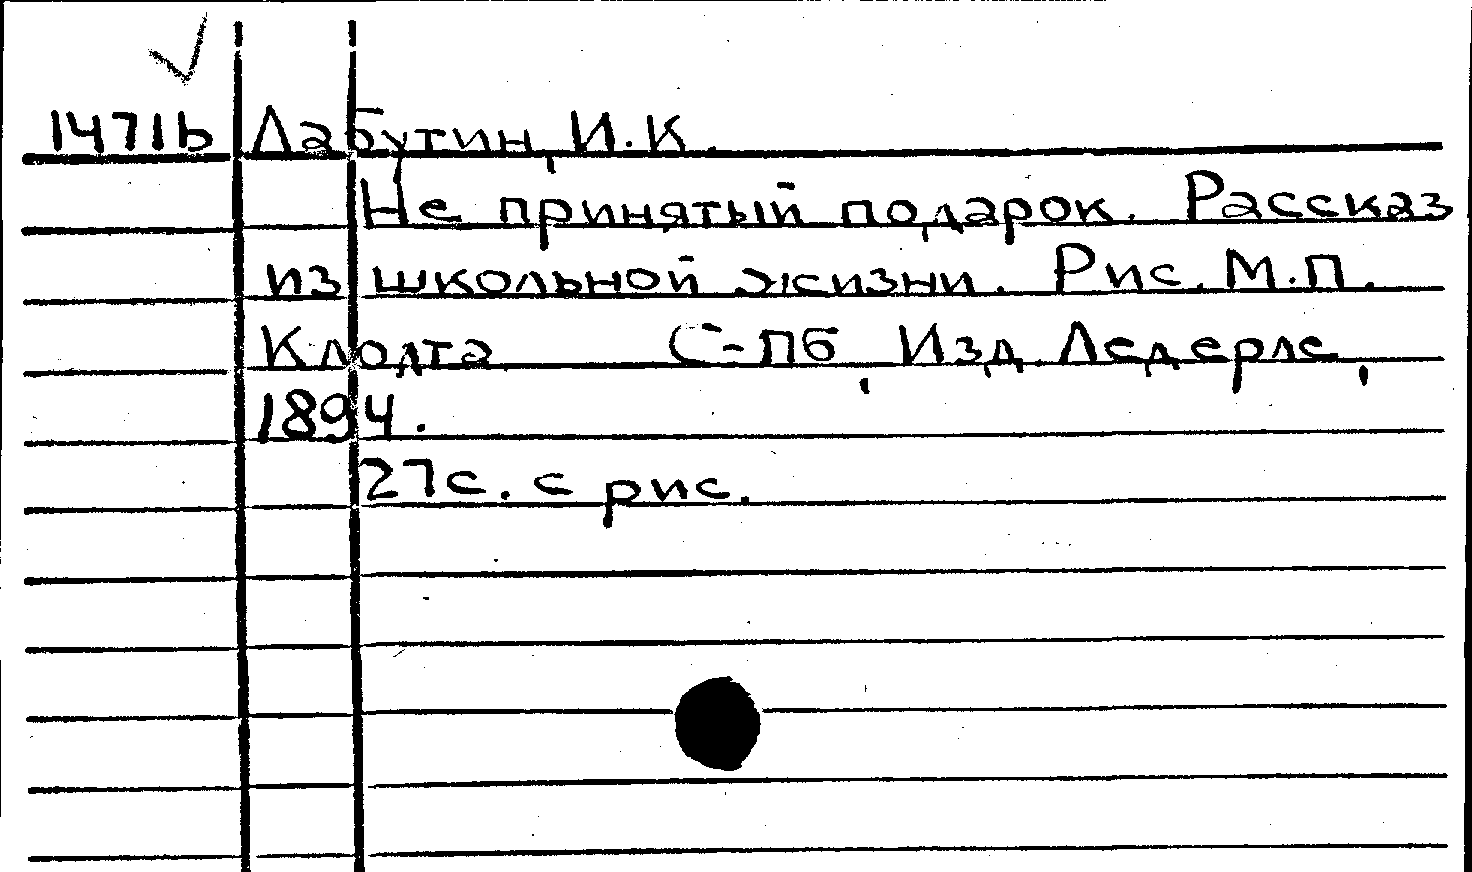 1471b Лабутин, И.К.
Не принятый подарок. Рассказ
из школьной жизни. Рис. М.П.
Клодта С-Пб, Изд. Ледерле,
1894.
27с. с рис.